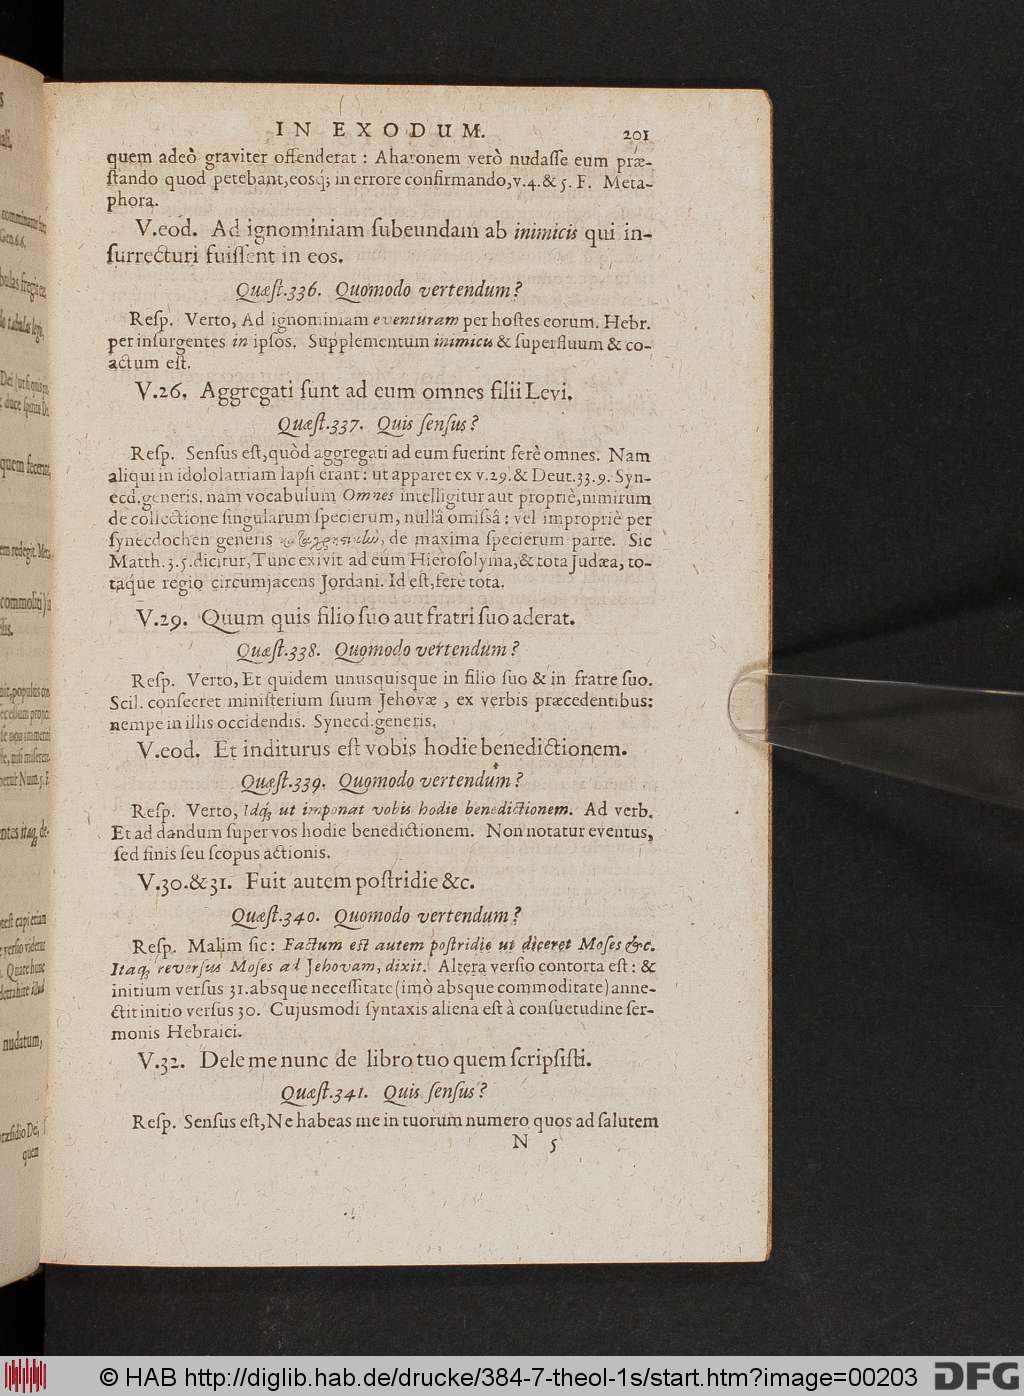 IN EXODUM. 201
quem adeò graviter offenderat : Aharonem verò nudaſſe eum præ-
ſtando quod petebant, eosq; in errore confirmando, v.4. & 5. F. Meta-
phora.
V. eod. Ad ignominiam ſubeundam ab inimicis qui in-
ſurrecturi fuiſſent in eos.
Quæſt. 336. Quomodo vertendum?
Reſp. Verto, Ad ignominiam eventuram per hoſtes eorum. Hebr.
per inſurgentes in ipſos. Supplementum inimicis & ſuperfluum & co-
actum eſt.
V. 26. Aggregati ſunt ad eum omnes filii Levi.
Quæſt. 337. Quis ſenſus?
Reſp. Senſus eſt, quòd aggregati ad eum fuerint ferè omnes. Nam
aliqui in idololatriam lapſi erant : ut apparet ex v. 29. & Deut. 33. 9. Syn-
ecd. generis. nam vocabulum Omnes intelligitur aut propriè, nimirum
de collectione ſingularum ſpecierum, nullâ omiſſâ : vel impropriè per
ſynecdochen generis de maxima ſpecierum parte. Sic
Matth. 3. 5. dicitur, Tunc exivit ad eum Hieroſolyma, & tota Judæa, to-
taque regio circumjacens Jordani. Id eſt, ferè tota.
V. 29. Quum quis filio ſuo aut fratri ſuo aderat.
Quæſt. 338. Quomodo vertendum?
Reſp. Verto, Et quidem unusquisque in filio ſuo & in fratre ſuo.
Scil. conſecret miniſterium ſuum Jehovæ , ex verbis præcedentibus:
nempe in illis occidendis. Synecd. generis.
V. eod. Et inditurus eſt vobis hodie benedictionem.
Quæſt. 339. Quomodo vertendum?
Reſp. Verto, Idq; ut imponat vobis hodie benedictionem. Ad verb.
Et ad dandum ſuper vos hodie benedictionem. Non notatur eventus,
ſed finis ſeu ſcopus actionis.
V. 30. & 31. Fuit autem poſtridie &c.
Quæſt. 340. Quomodo vertendum?
Reſp. Malim ſic : Factum eſt autem poſtridie ut diceret Moſes &c.
Itaq; reverſus Moſes ad Jehovam, dixit. Altera verſio contorta eſt : &
initium verſus 31. absque neceſſitate (imò absque commoditate) anne-
ctit initio verſus 30. Cujusmodi ſyntaxis aliena eſt à conſuetudine ſer-
monis Hebraici.
V. 32. Dele me nunc de libro tuo quem ſcripſiſti.
Quæſt. 341. Quis ſenſus?
Reſp. Senſus eſt, Ne habeas me in tuorum numero quos ad ſalutem
N 5
© HAB http://diglib.hab.de/drucke/384-7-theol-1s/start.htm?image=00203 DFG